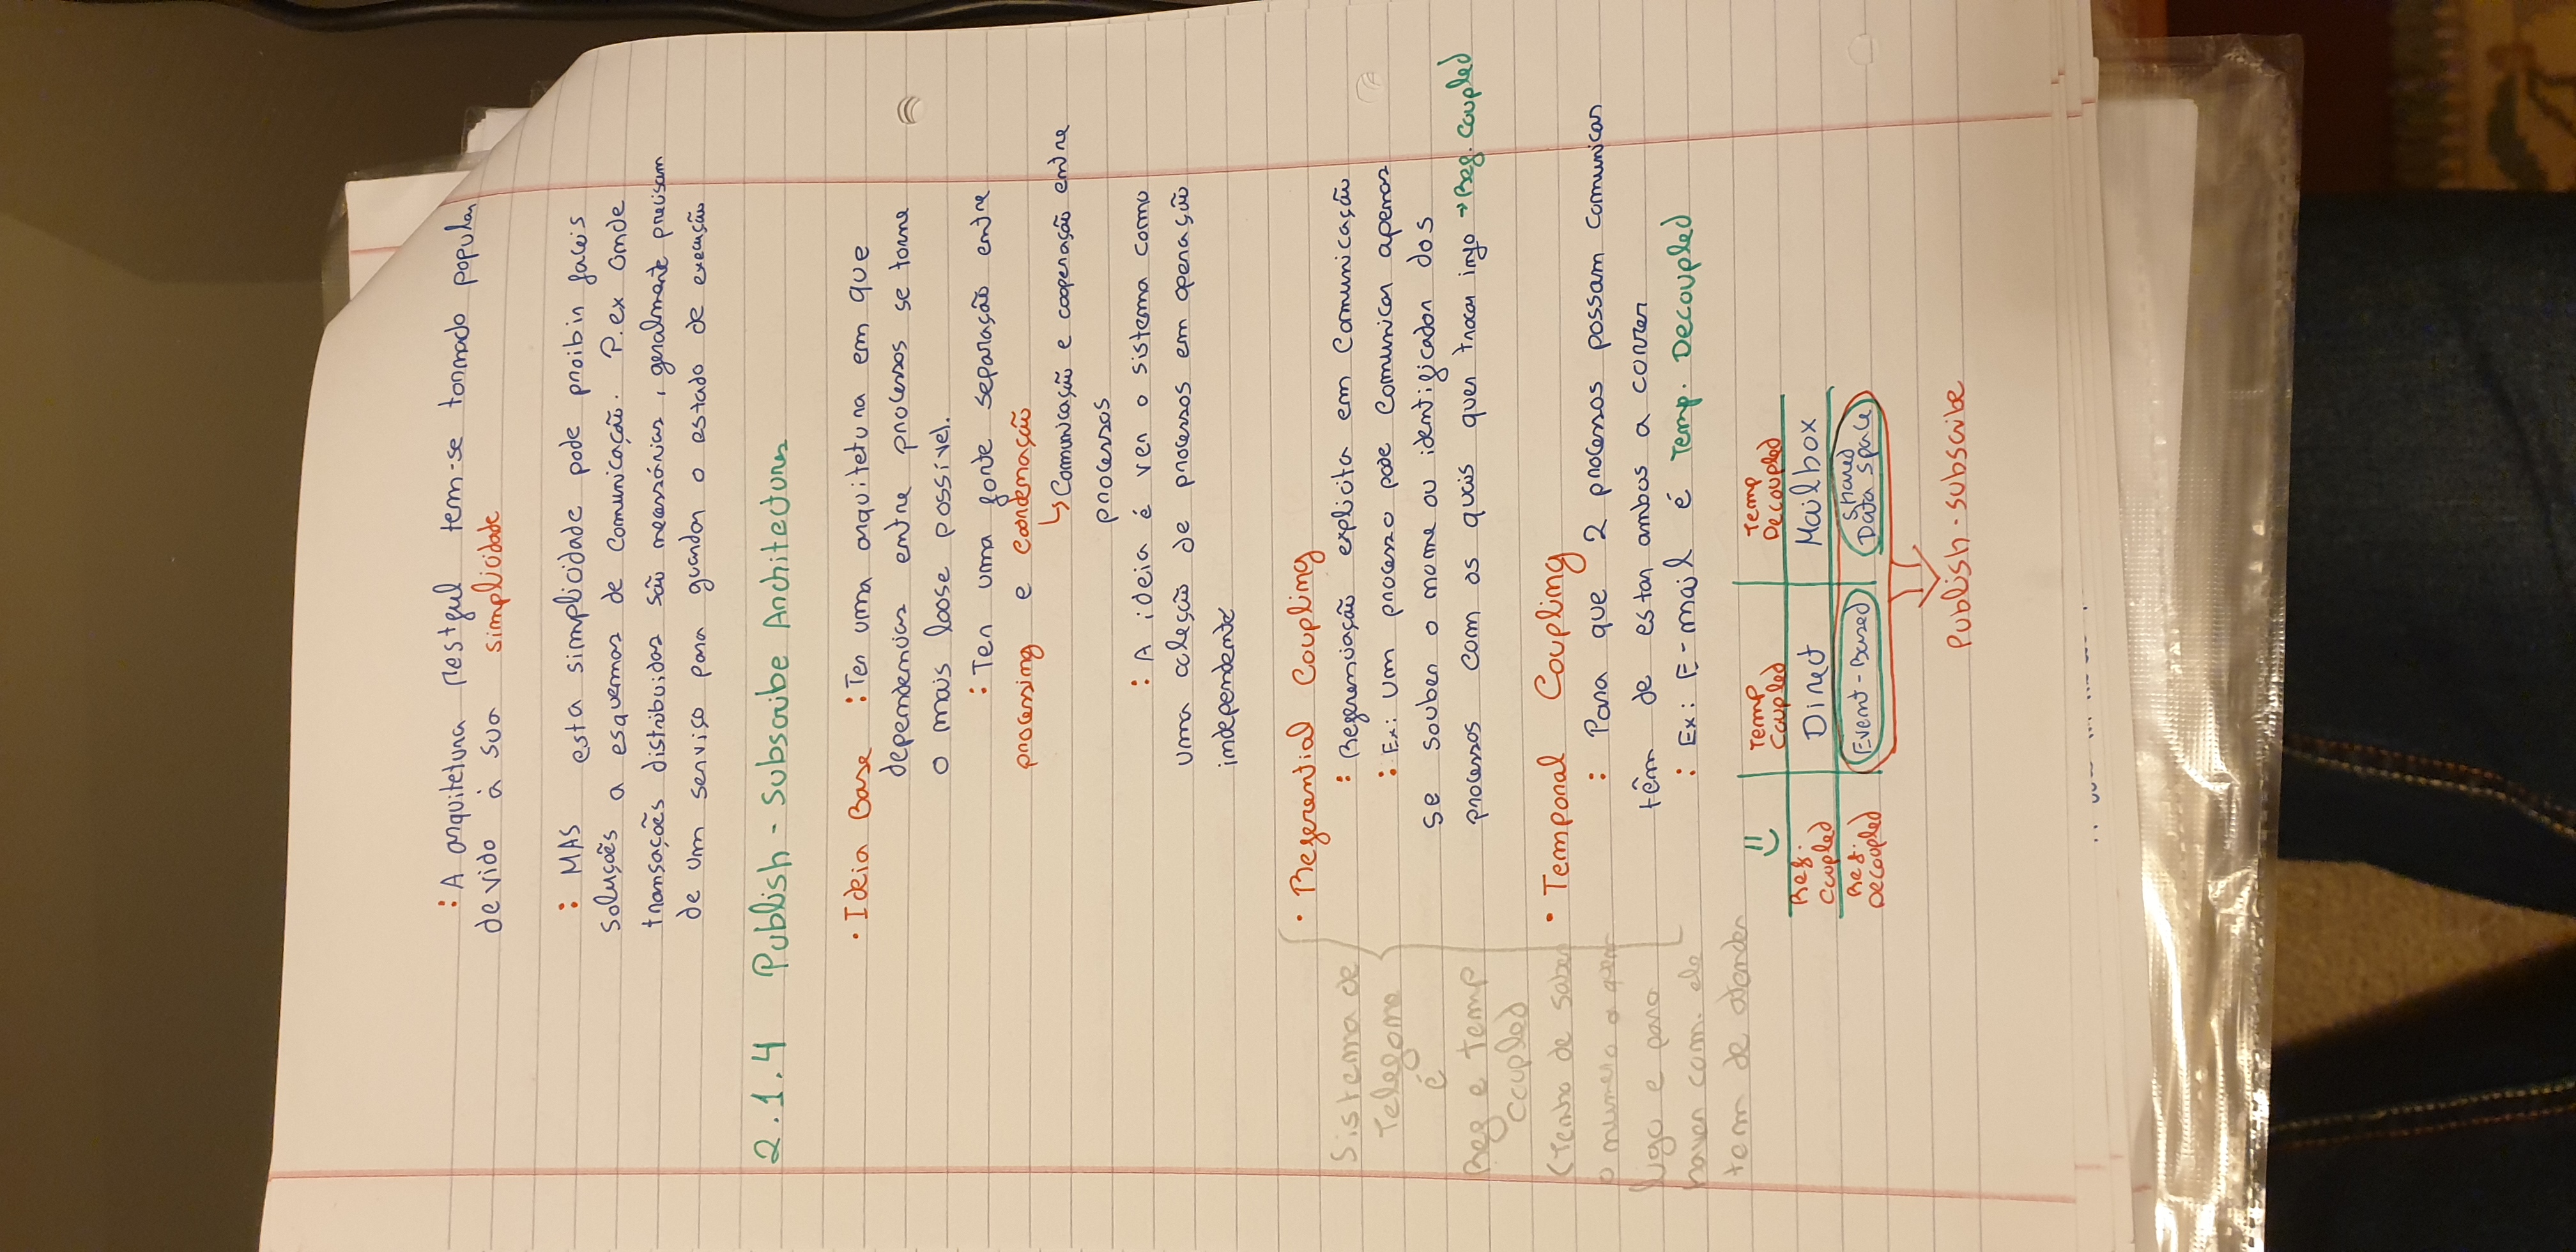 : A arquitetura Restful tem-se tornado popular
devido à sua simplicidade
: MAS esta simplicidade pode proibir faceis
soluções a esquemas de comunicação. P.ex onde
transações distribuidas são necessárias, geralmente precisam
de um serviço para guardar o estado de execução
2.1.4 Publish-Subscribe Architectures
• Ideia Base : Ter uma arquitetura em que
dependencias entre processos se torne
o mais loose possível.
: Ter uma forte separação entre
processing e coordenação
↳ Comunicação e cooperação entre
processos
: A ideia é ver o sistema como
uma coleção de processos em operação
independente
• Referential Coupling
: Referenciação explicita em Comunicação
: Ex: Um processo pode comunicar apenas
se souber o nome ou identificador dos
processos com os quais quer trocar info → Ref. Coupled
• Temporal Coupling
: Para que 2 processos possam comunicar
têm de estar ambos a correr
: Ex: E-mail é Temp. Decoupled
Sistema de
Telefone
é
Ref e Temp
Coupled
(Tenho de saber
o numero a quem
ligo e para
haver com. ele
tem de atender
Temp Coupled Temp Decoupled
Ref. Coupled Direct Mailbox
Ref. Decoupled Event-Based Shared Data Space
Publish-subscribe